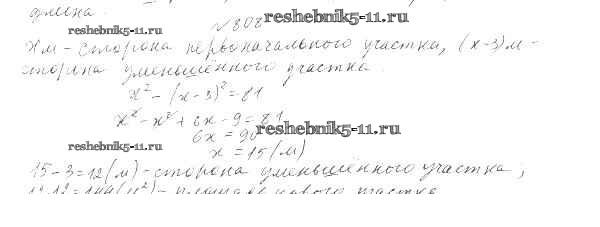 длина.
№808 reshebnik5-11.ru
reshebnik5-11.ru
x м - сторона первоначального участка, (x-3) м -
сторона уменьшённого участка.
x² - (x-3)² = 81
x² - x² + 6x - 9 = 81
6x = 90 reshebnik5-11.ru
reshebnik5-11.ru x = 15 (м)
15 - 3 = 12 (м) - сторона уменьшённого участка;
12·12 = 144 (м²) - площадь нового участка